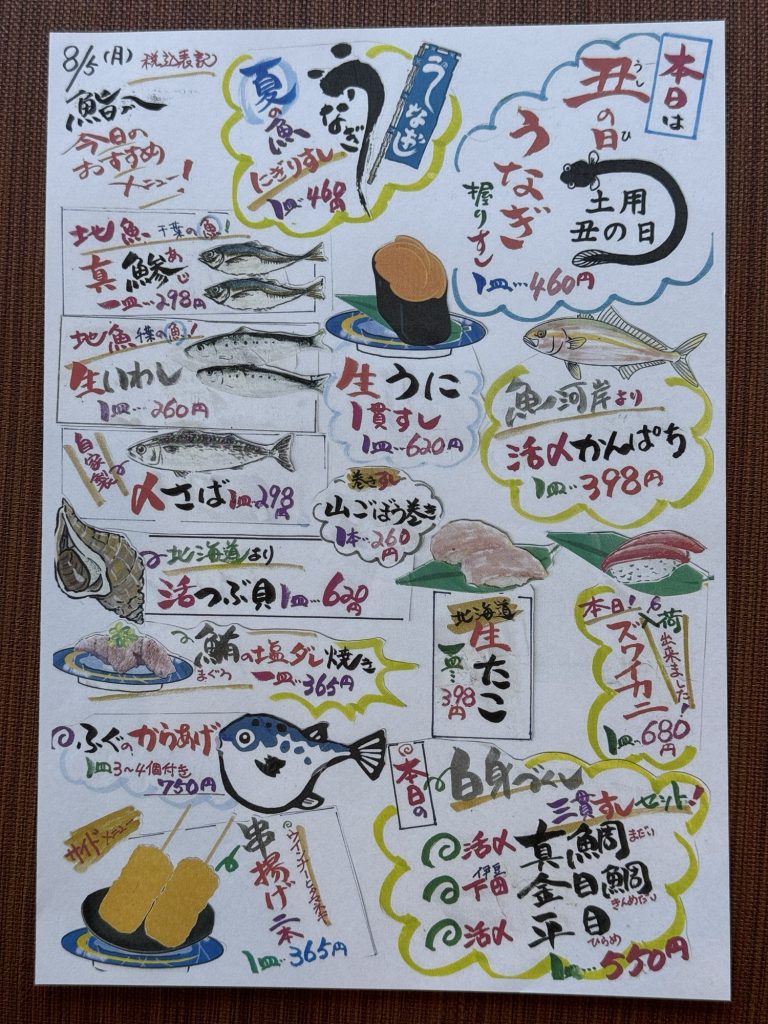 8/5(月) 税込表記
今日の
おすすめ
メニュー!
夏の魚
うなぎ
うなぎ
にぎりすし
1皿…460円
本日は
丑の日
うし
ひ
うなぎ
握りすし
土用
丑の日
1皿…460円
地魚 千葉の魚!
真鯵
あじ
一皿…298円
地魚 千葉の魚!
生いわし
1皿…260円
自家製
〆さば 1皿…298円
生うに
1貫すし
1皿…620円
魚河岸より
活〆かんぱち
1皿…398円
巻きすし
山ごぼう巻き
1本…260円
北海道より
活つぶ貝 1皿…620円
鮪の塩ダレ焼き
まぐろ
一皿…365円
北海道
生たこ
一皿…398円
本日!
入荷出来ました!
ズワイカニ
1皿…680円
ふぐのからあげ
1皿3〜4個付き
750円
サイドメニュー
串揚げ二本
1皿…365円
本日の
白身づくし
三貫すしセット!
活〆 真鯛 まだい
伊豆
下田 金目鯛 きんめだい
活〆 平目 ひらめ
1皿…550円